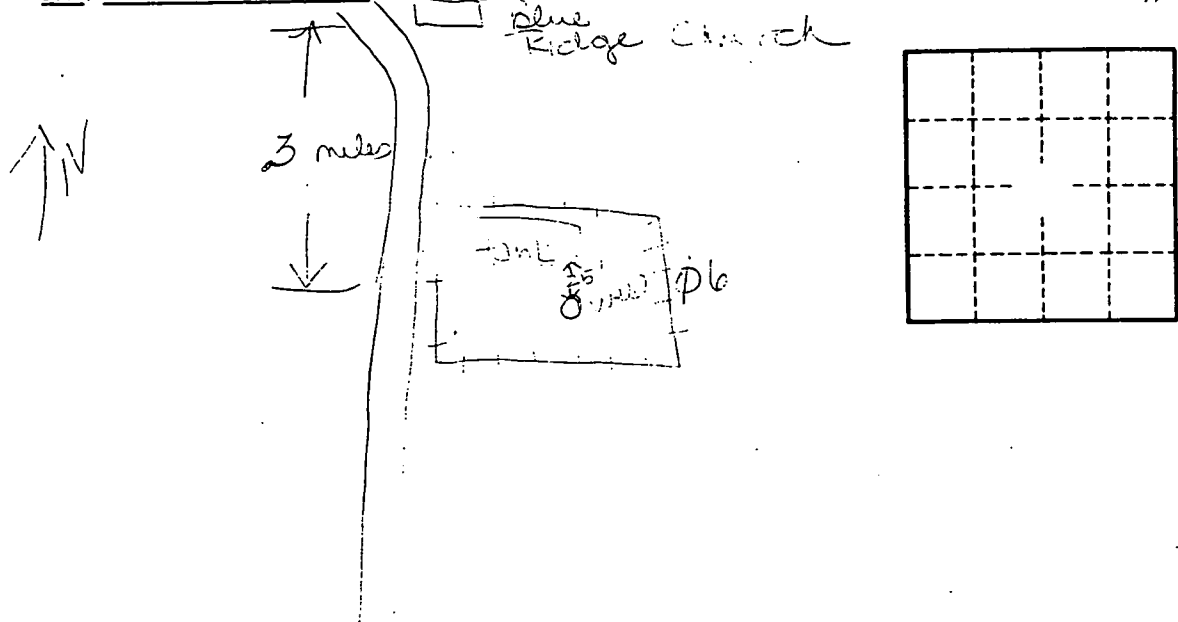 Blue
Ridge Church
N
.3 miles
tank
5'
well
P6